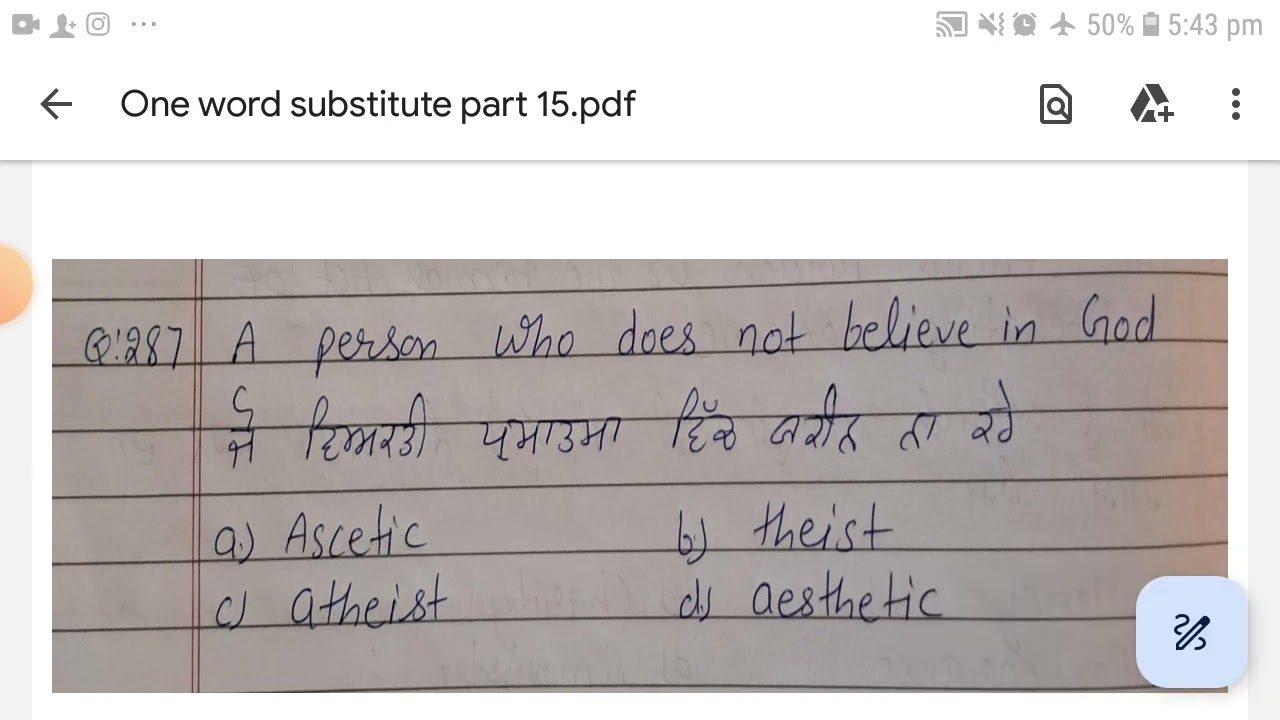 50% 5:43 pm
One word substitute part 15.pdf
Q:287 A person who does not believe in God
ਜੋ ਵਿਅਕਤੀ ਪ੍ਰਮਾਤਮਾ ਵਿੱਚ ਯਕੀਨ ਨਾ ਕਰੇ
a.) Ascetic b.) theist
c) atheist d.) aesthetic